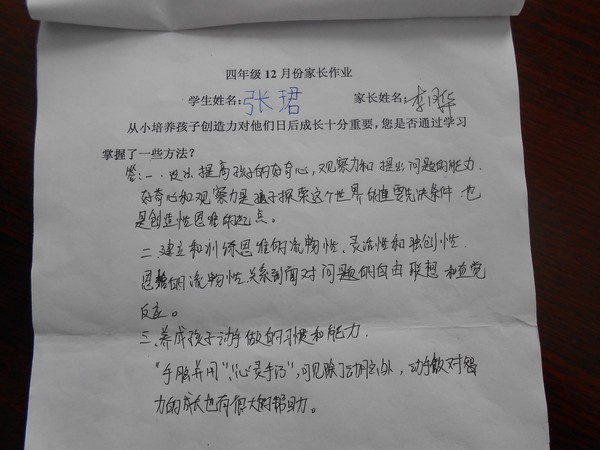 四年级 12 月份家长作业
学生姓名：张珺 家长姓名：李
从小培养孩子创造力对他们日后成长十分重要，您是否通过学习
掌握了一些方法？
答：一、提高孩子的好奇心，观察力和提出问题的能力.
好奇心和观察力是孩子探索这个世界的重要先决条件.也
是创造性思维的起点。
二.建立和训练思维的流畅性、灵活性和独创性.
思维的流畅性.关系到面对问题的自由联想和直觉
反应。
三.养成孩子动手做的习惯和能力.
"手脑并用""心灵手巧"，可见除了动脑外，动手做对智
力的成长也有很大的帮助力。